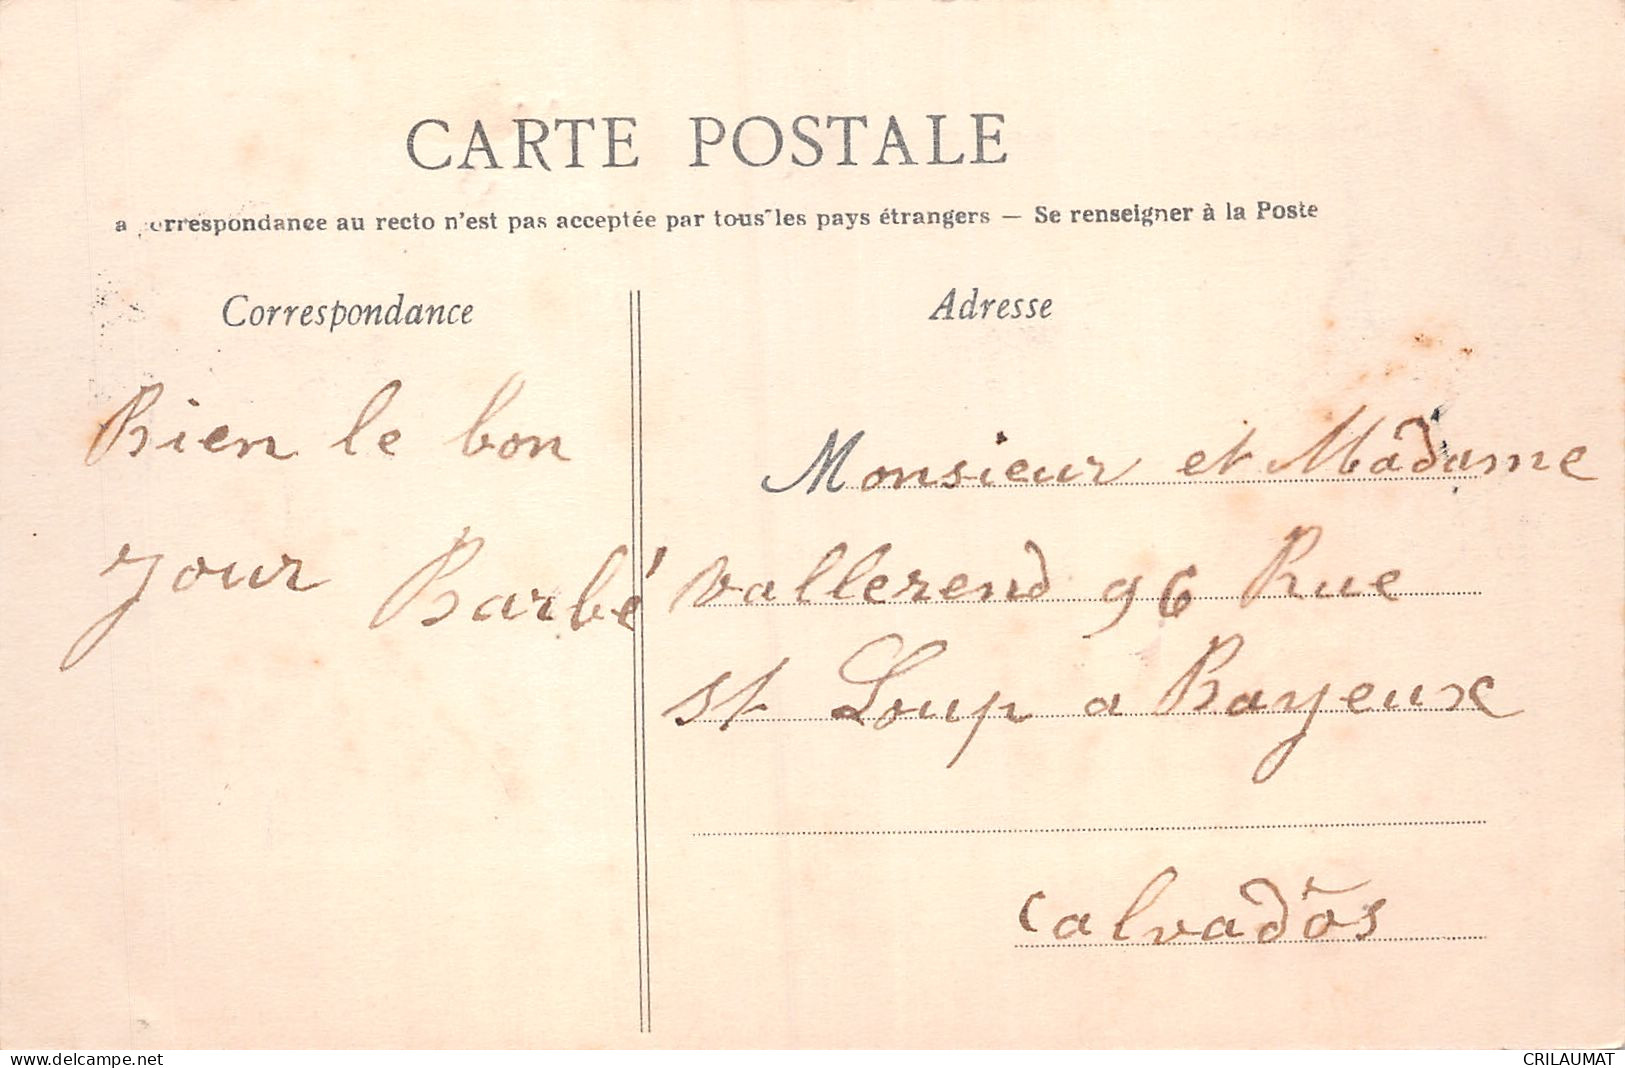 CARTE POSTALE
a correspondance au recto n'est pas acceptée par tous les pays étrangers — Se renseigner à la Poste
Correspondance
Bien le bon
jour Barbé
Adresse
Monsieur et Madame
Vallerend 96 Rue
St Loup a Bayeux
Calvados
www.delcampe.net
CRILAUMAT